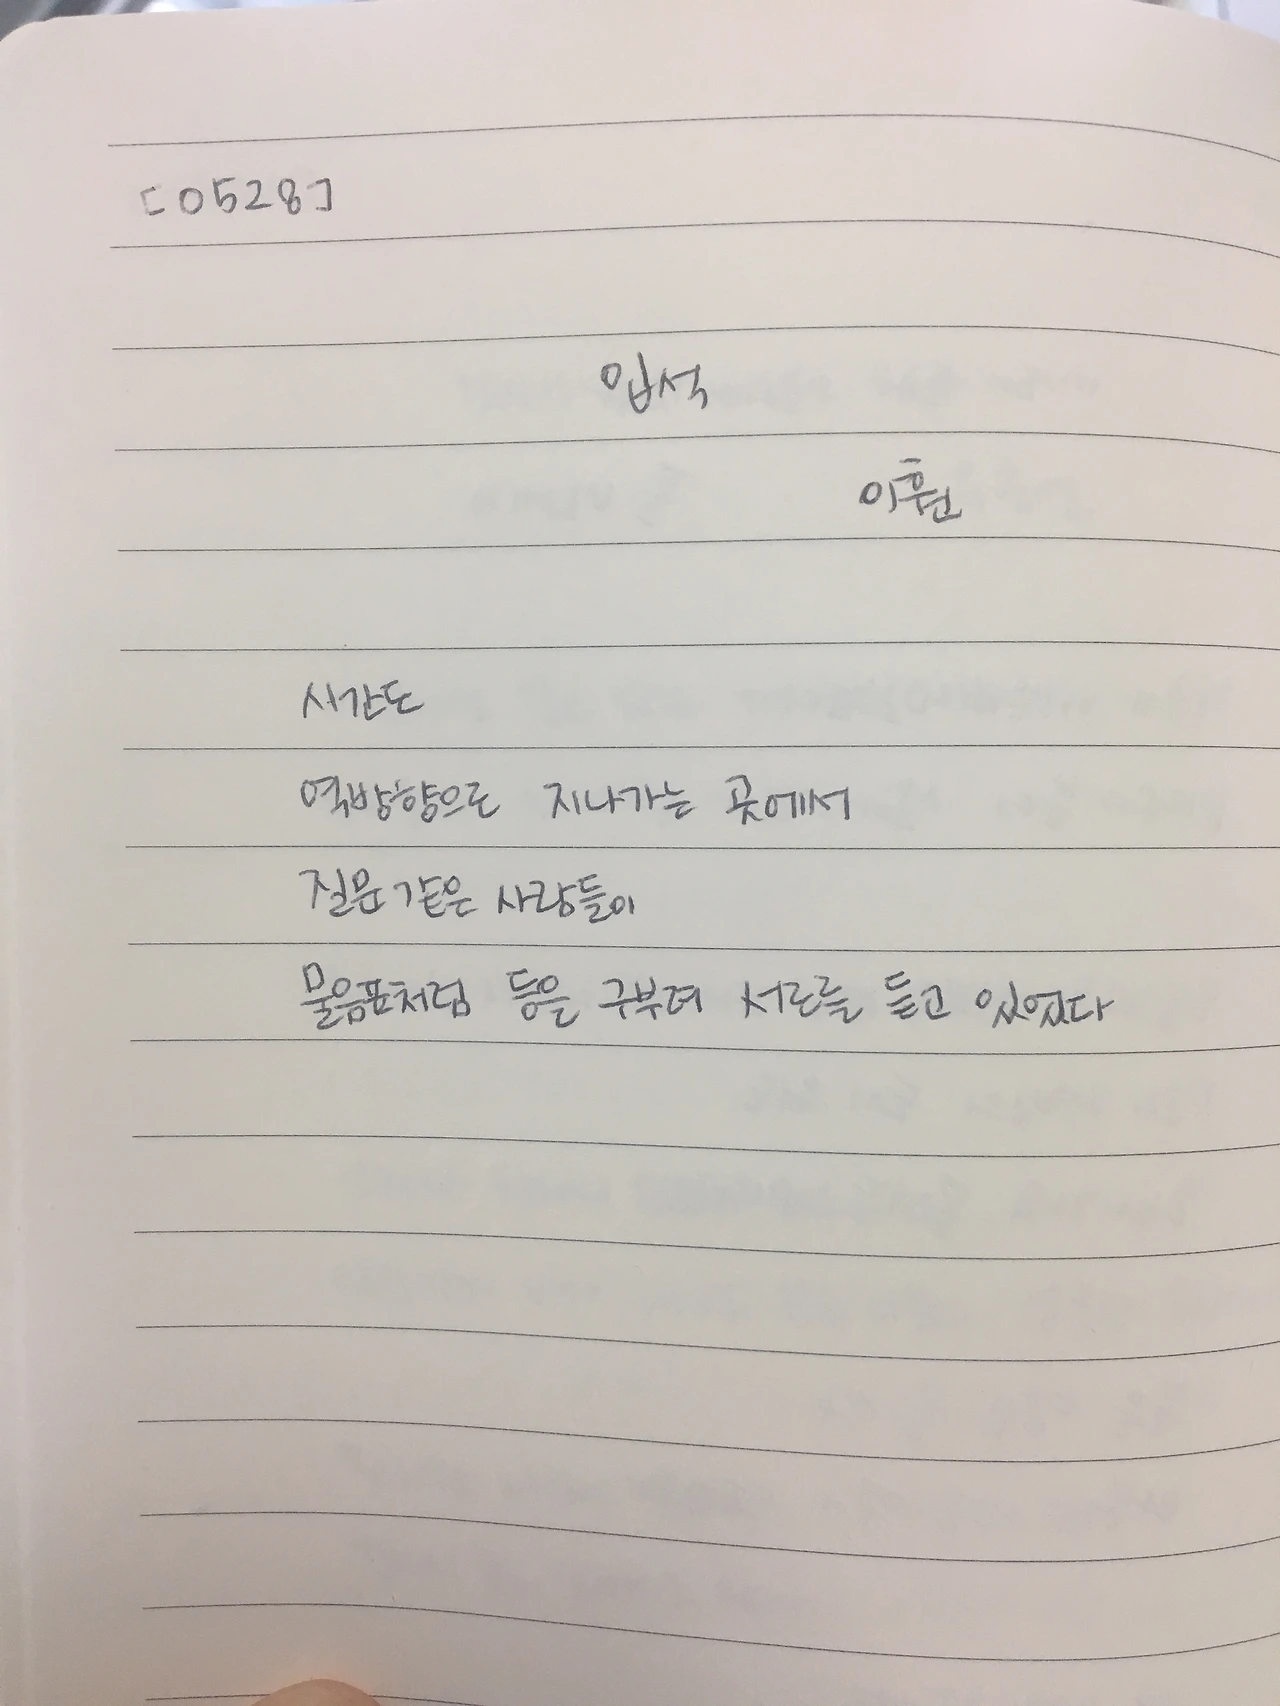 [0528]
입석
이훤
시간도
역방향으로 지나가는 곳에서
질문 같은 사람들이
물음표처럼 등을 구부려 서로를 듣고 있었다